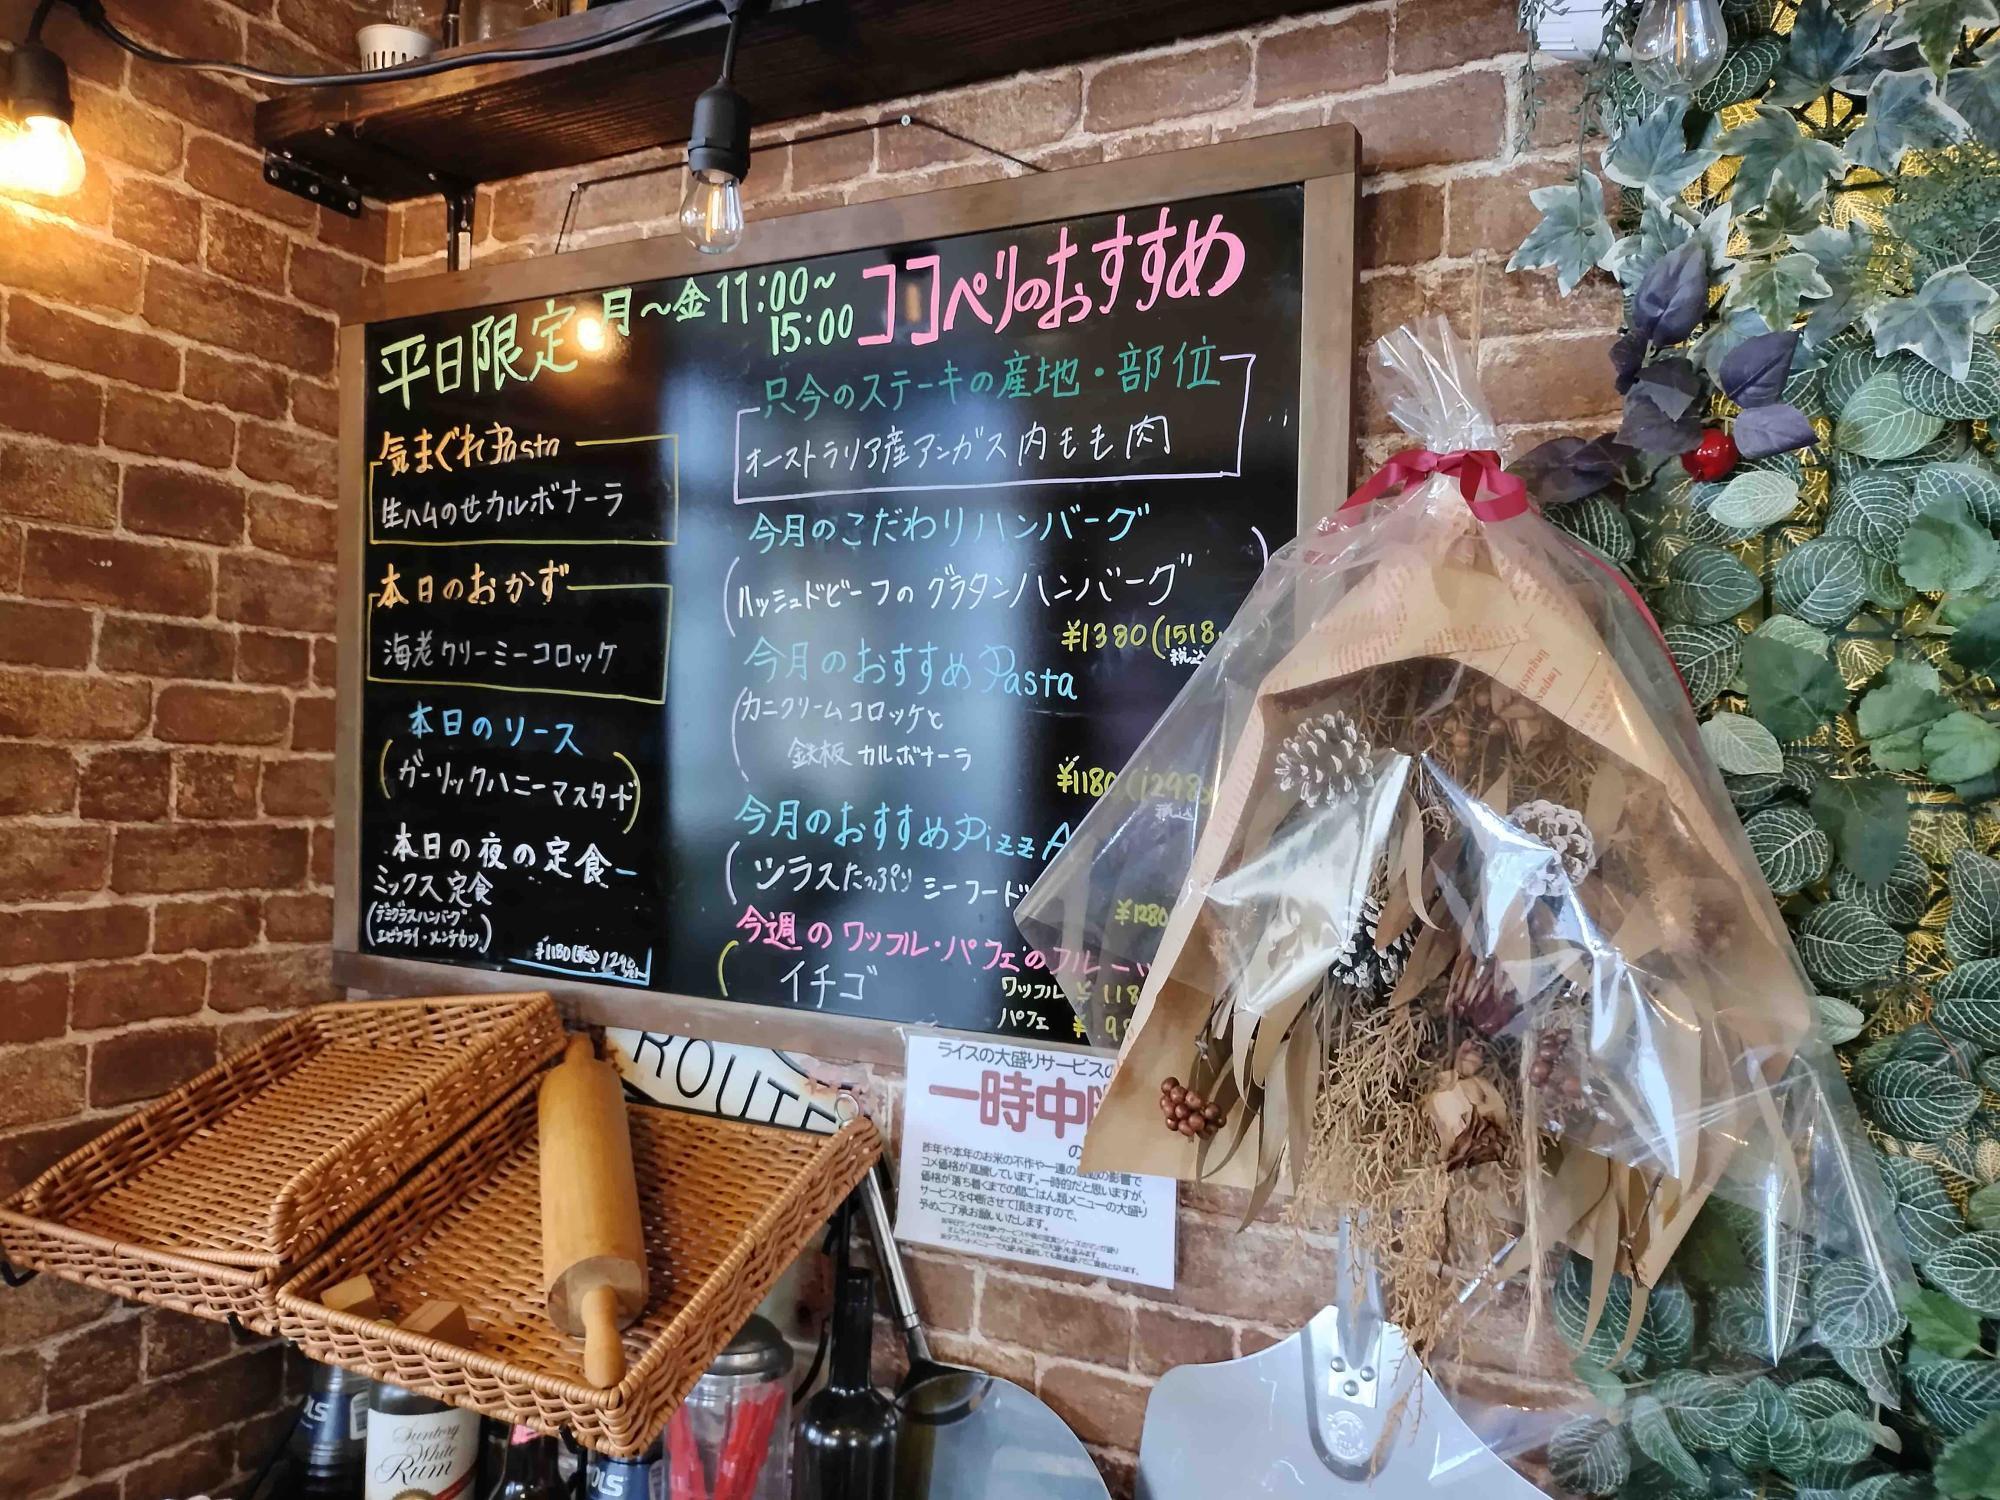 平日限定 月～金 11:00～
15:00
気まぐれPasta
生ハムのせカルボナーラ
本日のおかず
海老クリーミーコロッケ
本日のソース
ガーリックハニーマスタード
本日の夜の定食
ミックス定食
(デミグラスハンバーグ
エビフライ・メンチカツ)
¥1180(税込1298
ココペリのおすすめ
只今のステーキの産地・部位
オーストラリア産アンガス内もも肉
今月のこだわりハンバーグ
(ハッシュドビーフのグラタンハンバーグ)
¥1380(1518
税込
今月のおすすめPasta
(カニクリームコロッケと
鉄板カルボナーラ
¥1180(1298
税込
今月のおすすめPizzA
(シラスたっぷりシーフード
¥1280
今週のワッフル・パフェのフルーツ
イチゴ
ワッフル ¥118
パフェ ¥98
ROUTE
ライスの大盛りサービスの
一時中
昨年や本年のお米の不作や一連の の影響で
コメ価格が高騰しています。一時的だと思いますが、
価格が落ち着くまでの間ごはん類メニューの大盛り
サービスを中断させて頂きますので、
予めご了承お願いいたします。
Suntory
White
Rum
OLS